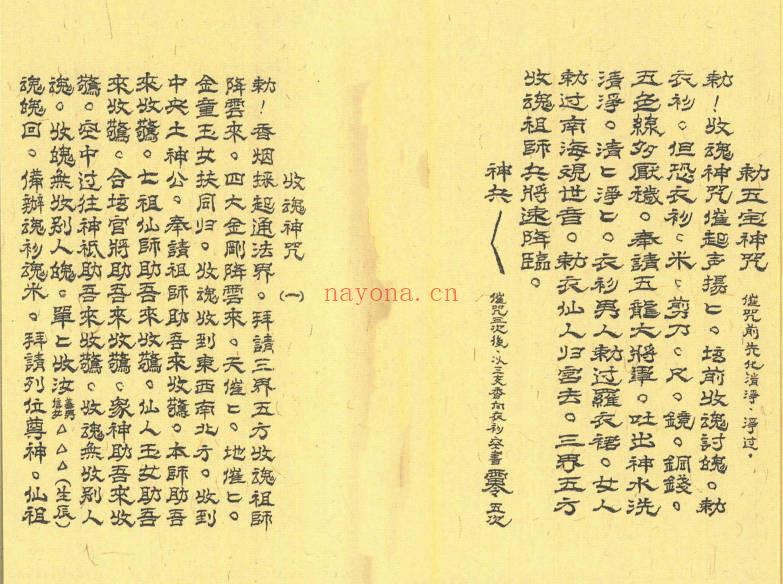 勅五宝神咒 催咒前先化清淨、淨过。
勅！收魂神咒催起声揚匕。坛前收魂討魄。勅
衣衫。但恐衣衫、米、剪刀、尺、鏡。銅錢。
五色線多厭穢。奉請五龍大將軍。吐出神水洗
清淨。清匕淨匕。衣衫男人勅过羅衣裙。女人
勅过南海观世音。勅衣仙人归宮去。三界五方
收魂祖师兵將速降臨。
神兵 催咒三次後、以三支香向衣衫空書 五次
收魂神咒（一）
勅！香烟採起通法界。拜請三界五方收魂祖师
降雲來。四大金剛降雲來。天催匕。地催匕。
金童玉女扶同归。收魂收到東西南北方。收到
中央土神公。奉請祖师助吾來收驚。本师助吾
來收驚。七祖仙师助吾來收驚。仙人玉女助吾
來收驚。合坛官將助吾來收驚。眾神助吾來收
驚。空中过往神祇助吾來收驚。收魂無收别人
魂。收魄無收别人魄。單匕收汝善男信女△△△（生辰）
魂魄回。備辦魂衫魂米。拜請列位尊神。仙祖
nayona.cn